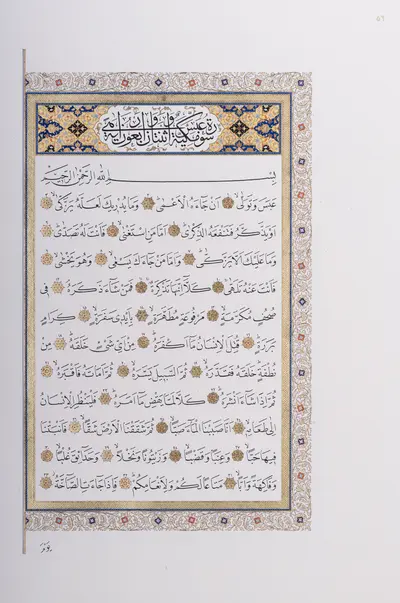 ٥٦
سورة عبس مكية وهي اثنتان وأربعون آية
بِسْمِ اللهِ الرَّحْمٰنِ الرَّحِيمِ
عَبَسَ وَتَوَلّٰى اَنْ جَاءَهُ الْاَعْمٰى وَمَا يُدْرِيكَ لَعَلَّهُ يَزَّكّٰى
اَوْ يَذَّكَّرُ فَتَنْفَعَهُ الذِّكْرٰى اَمَّا مَنِ اسْتَغْنٰى فَاَنْتَ لَهُ تَصَدّٰى
وَمَا عَلَيْكَ اَلَّا يَزَّكّٰى وَاَمَّا مَنْ جَاءَكَ يَسْعٰى وَهُوَ يَخْشٰى
فَاَنْتَ عَنْهُ تَلَهّٰى كَلَّا اِنَّهَا تَذْكِرَةٌ فَمَنْ شَاءَ ذَكَرَهُ فِى
صُحُفٍ مُكَرَّمَةٍ مَرْفُوعَةٍ مُطَهَّرَةٍ بِاَيْدِى سَفَرَةٍ كِرَامٍ
بَرَرَةٍ قُتِلَ الْاِنْسَانُ مَا اَكْفَرَهُ مِنْ اَىِّ شَىْءٍ خَلَقَهُ مِنْ
نُطْفَةٍ خَلَقَهُ فَقَدَّرَهُ ثُمَّ السَّبِيلَ يَسَّرَهُ ثُمَّ اَمَاتَهُ فَاَقْبَرَهُ
ثُمَّ اِذَا شَاءَ اَنْشَرَهُ كَلَّا لَمَّا يَقْضِ مَا اَمَرَهُ فَلْيَنْظُرِ الْاِنْسَانُ
اِلٰى طَعَامِهِ اَنَّا صَبَبْنَا الْمَاءَ صَبًّا ثُمَّ شَقَقْنَا الْاَرْضَ شَقًّا فَاَنْبَتْنَا
فِيهَا حَبًّا وَعِنَبًا وَقَضْبًا وَزَيْتُونًا وَنَخْلًا وَحَدَائِقَ غُلْبًا
وَفَاكِهَةً وَاَبًّا مَتَاعًا لَكُمْ وَلِاَنْعَامِكُمْ فَاِذَا جَاءَتِ الصَّاخَّةُ
يَوْمَ